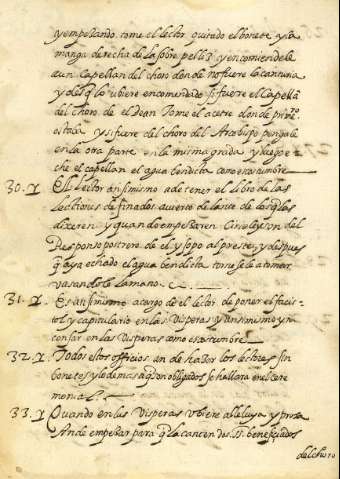 y empezando tome el lector quitado el bonete y la
manga derecha de la sobre pelliz y encomiendele
a un Capellan del choro donde no fuere la
y del q̃ la ubiere encomendado si fuere el Capellã
del choro de el dean tome el acetre donde primº
estava y si fuere del choro del Arcobispo pongale
en la otra parte en la misma grada y luego e
che el capellan el agua bendita como es costumbre
30. y El lector ansimismo a de tener el libro de las
lectiones de finados avierto delante de los q̃ las
dixeren y quando empeçaren el
Responso postrero de el ysopo al preste y despues
q̃ aya echado el agua bendicta tomesele a tomar
vasando le la mano.
31. y Es ansimismo a cargo de el lector de poner el facis-
tol y capitulario en las visperas y ansimismo yn
censar en las visperas como es costumbre
32. y Todos estos officios an de hazer los lectores sin
bonetes y lo demas a q̃ son obligados se hallara en el cere
monial.
33. y Quando en las Visperas ubiere alleluya y prosa
An de empezar para q̃ la canten dos SS. beneficiados
del choro